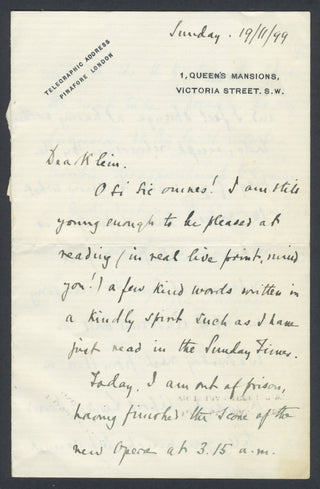 Sunday. 19/11/99
TELEGRAPHIC ADDRESS
PIRAFORE LONDON
1, QUEEN'S MANSIONS,
VICTORIA STREET. S.W.
Dear Klein.
O si sic omnes! I am still
young enough to be pleased at
reading (in real live print, mind
you!) a few kind words written in
a kindly spirit such as I have
just read in the Sunday Times.
Today, I am out of prison,
having finished the score of the
new Opera at 3.15 a.m.